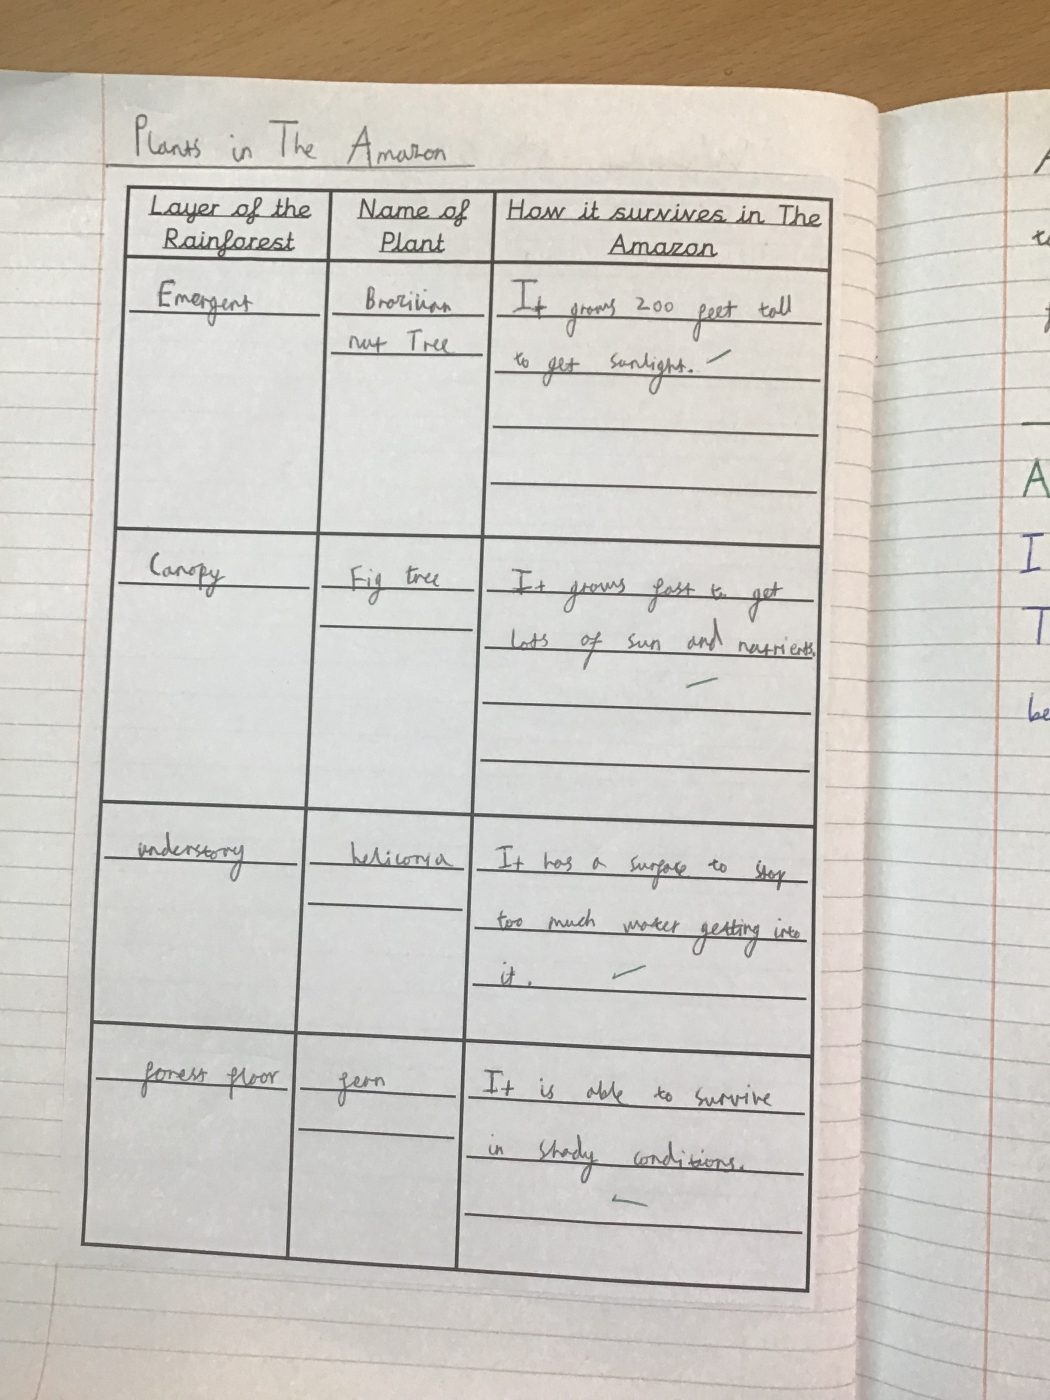 Plants in The Amazon
Layer of the
Rainforest
Name of
Plant
How it survives in The
Amazon
Emergent
Brazilian
nut Tree
It grows 200 feet tall
to get sunlight.
Canopy
Fig tree
It grows fast to get
lots of sun and nutrients.
understory
heliconia
It has a surface to stop
too much water getting into
it.
forest floor
fern
It is able to survive
in shady conditions.
A
I
T
be